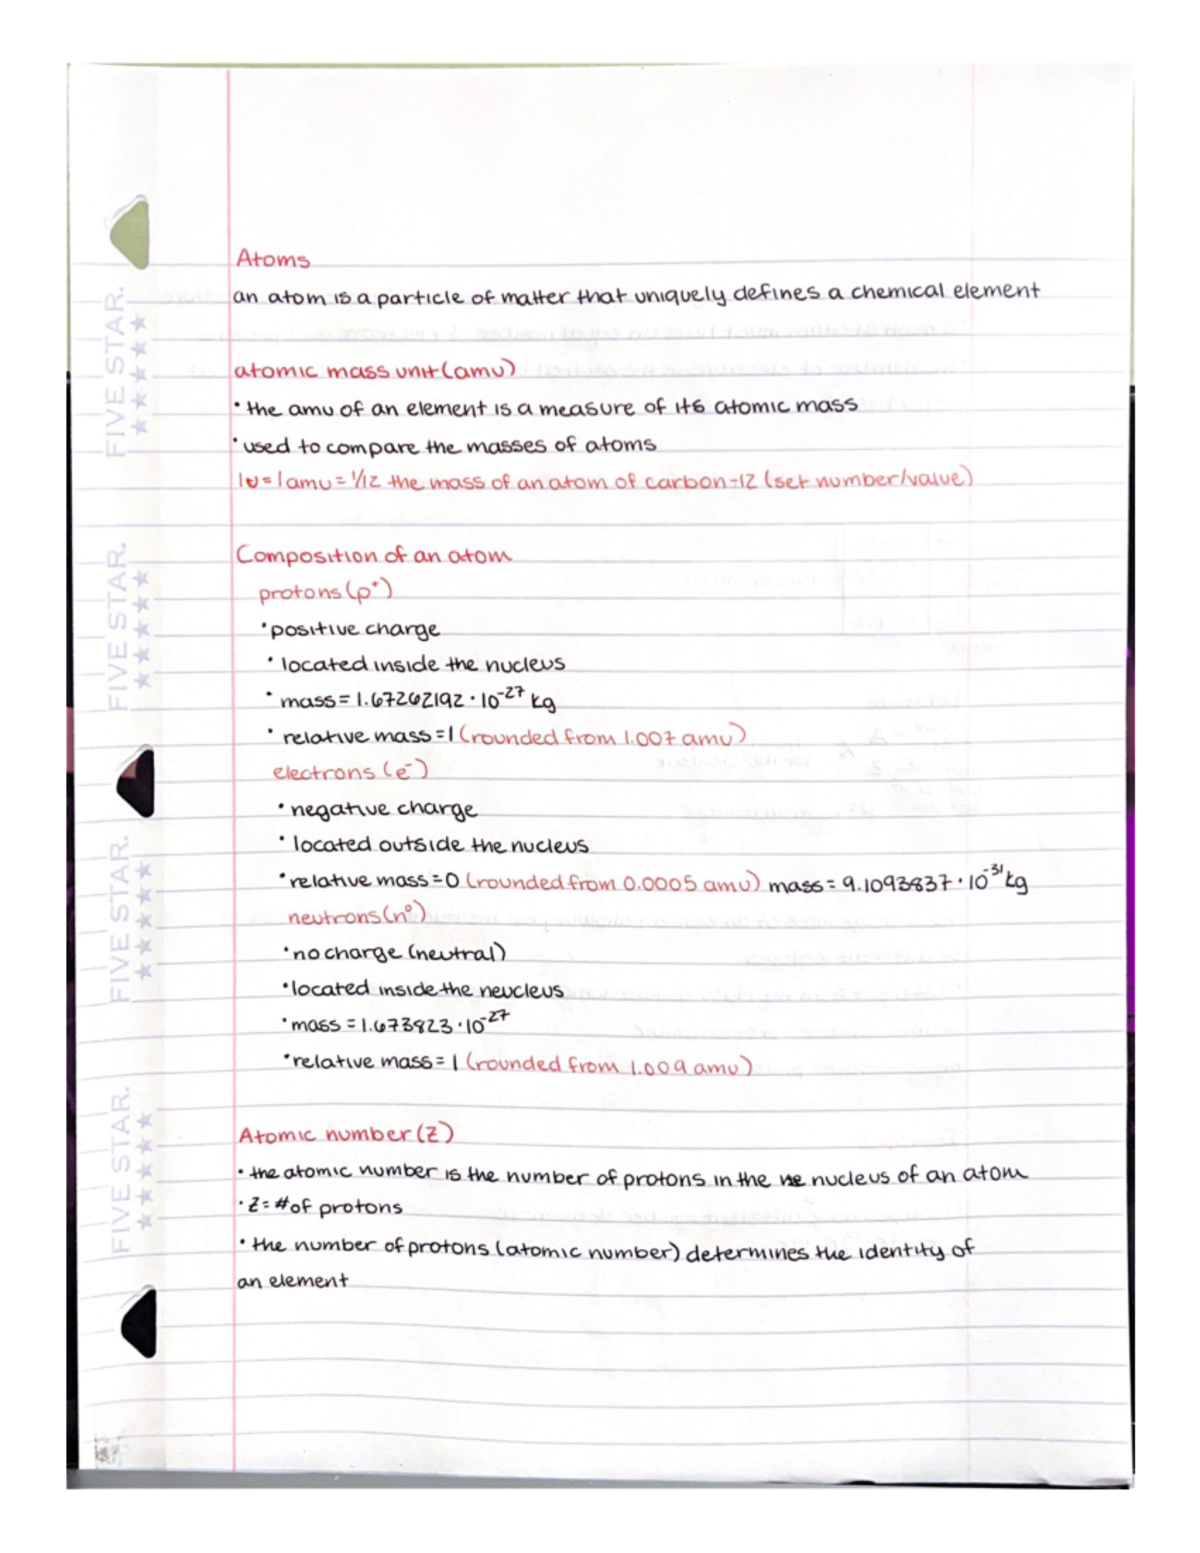 Atoms
an atom is a particle of matter that uniquely defines a chemical element
atomic mass unit (amu)
• the amu of an element is a measure of its atomic mass
• used to compare the masses of atoms
1u = 1amu = 1/12 the mass of an atom of carbon-12 (set number/value)
Composition of an atom
protons (p⁺)
• positive charge
• located inside the nucleus
• mass = 1.67262192 · 10⁻²⁷ kg
• relative mass = 1 (rounded from 1.007 amu)
electrons (e⁻)
• negative charge
• located outside the nucleus
• relative mass = 0 (rounded from 0.0005 amu) mass = 9.1093837 · 10⁻³¹ kg
neutrons (n⁰)
• no charge (neutral)
• located inside the neucleus
• mass = 1.673823 · 10⁻²⁷
• relative mass = 1 (rounded from 1.009 amu)
Atomic number (Z)
• the atomic number is the number of protons in the nucleus of an atom
• Z = # of protons
• the number of protons (atomic number) determines the identity of
an element
FIVE STAR.
FIVE STAR.
FIVE STAR.
FIVE STAR.